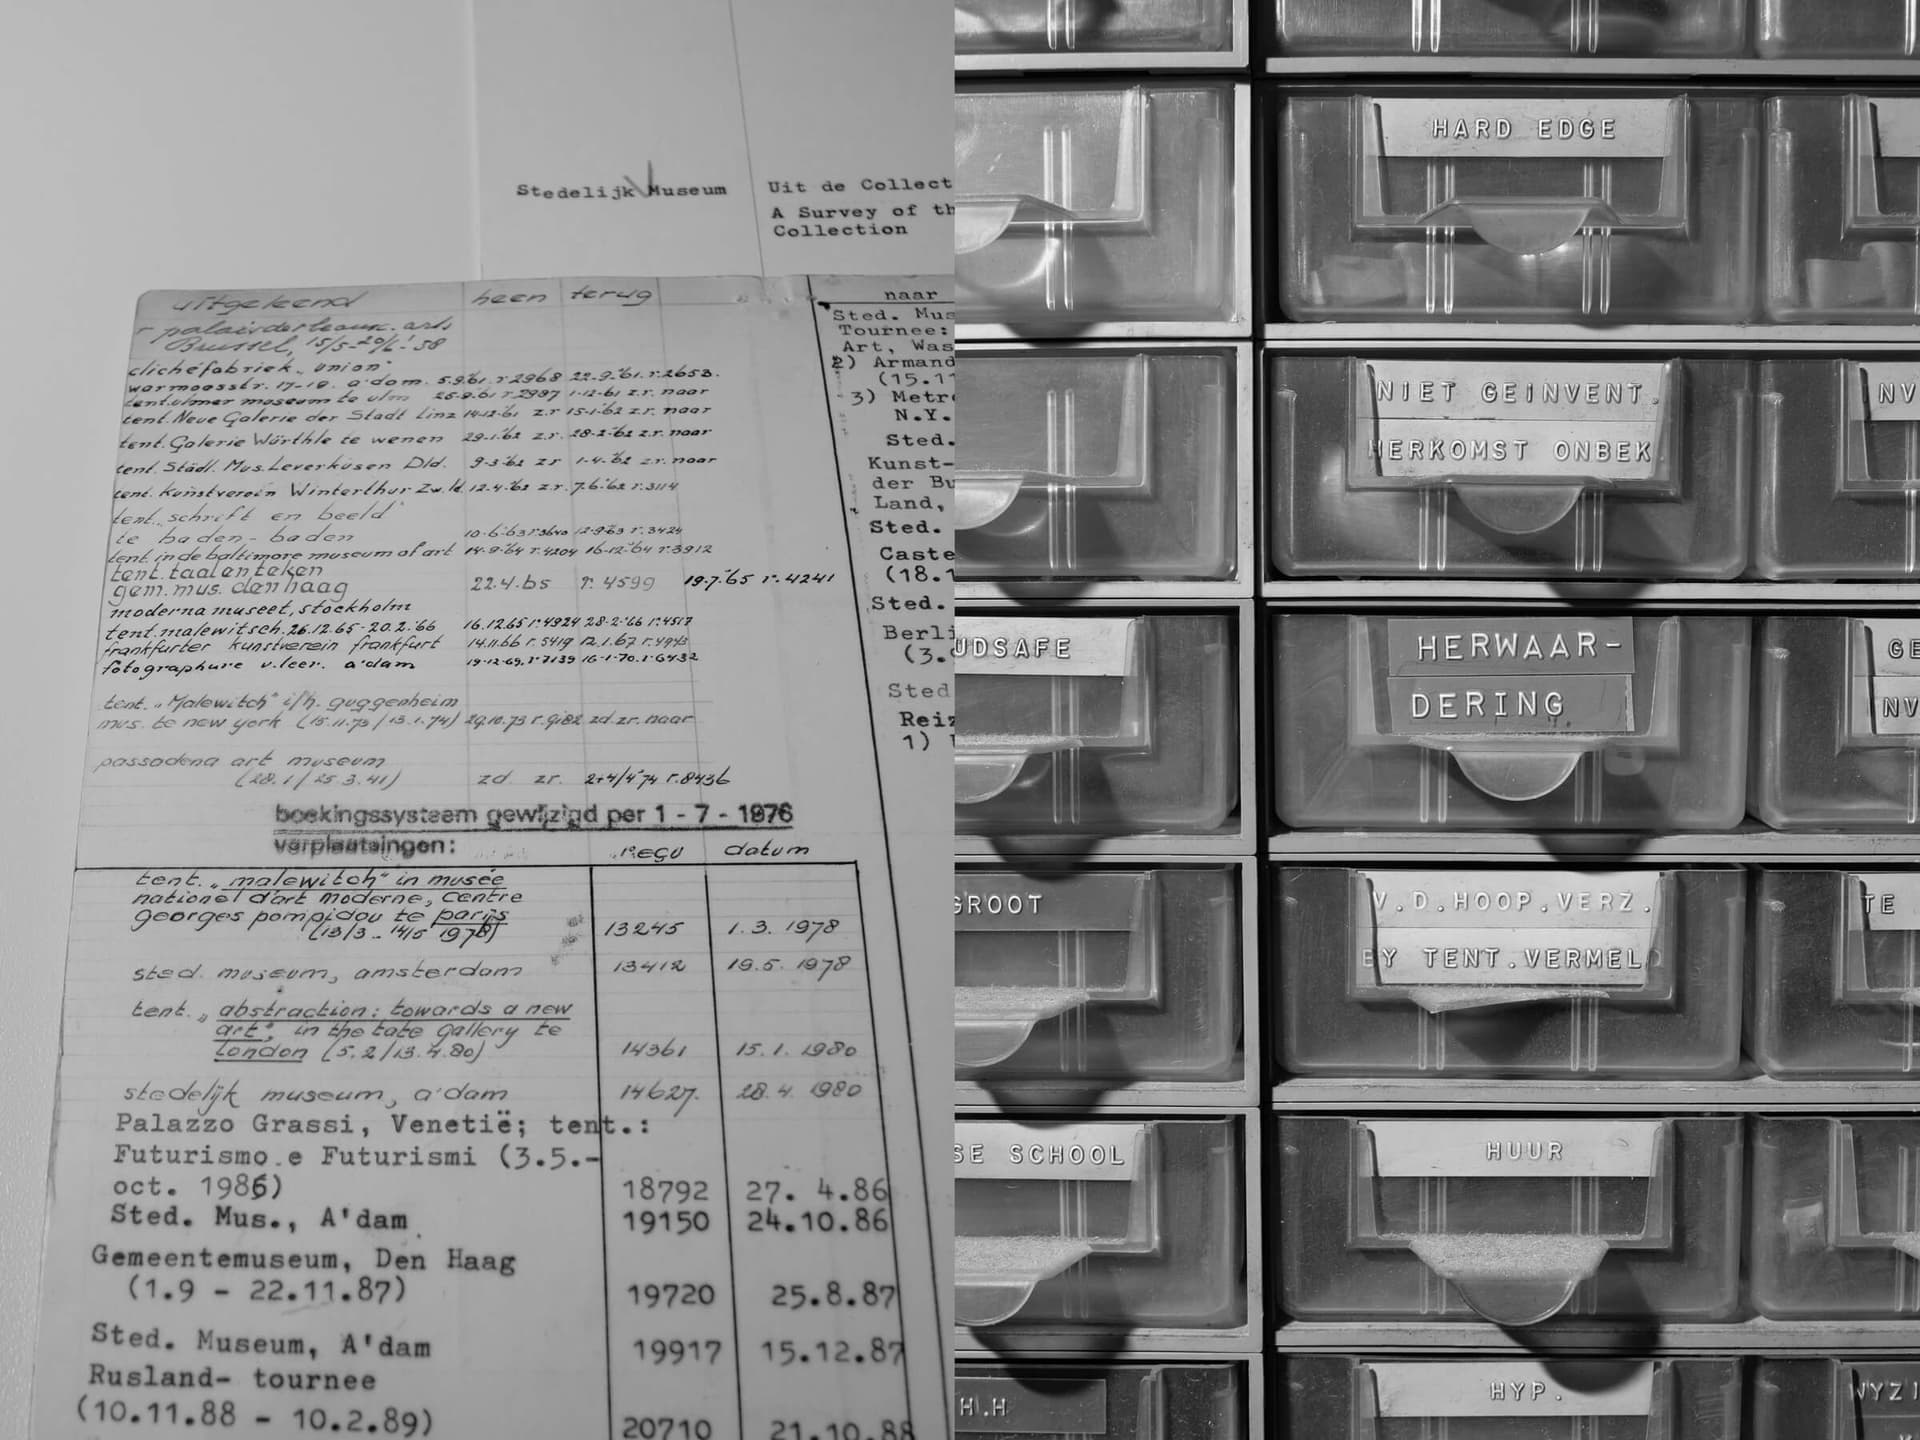 Stedelijk Museum
Uit de Collect
A Survey of th
Collection
uitgeleend heen terug
Brussel, 15/5-20/6-'58
clichéfabriek "union"
warmoesstr. 17-19. a'dam. 5.9.'61 r 2968 22.9.'61. r. 2653.
tent. ulmer museum te ulm 25.9.61 r 2987 1-12-61 z.r. naar
tent. Neue Galerie der Stadt Linz 14-12-'61 z.r 15-1-'62 z.r. naar
tent. Galerie Würthle te wenen 29-1-'62 z.r. 28-2-'62 z.r. naar
tent. Städl. Mus. Leverkusen Dld. 9-3-'62 zr 1-4-'62 z.r. naar
tent. Kunstverein Winterthur Zw.ld. 12-4-'62 z.r. 7-6-'62 r. 3114
tent. "schrift en beeld"
te baden-baden 10-6-'63 r. 3640 12-9-'63 r. 3424
tent. in de baltimore museum of art 14-9-'64 r. 4204 16-12-'64 r. 3912
tent. taal en teken
gem. mus. den haag 22.4.65 r. 4599 19.7.'65 r. 4241
moderna museet, stockholm
tent. malewitsch. 26.12.65-20.2.'66 16.12.65 r. 4924 28-2-'66 r. 4517
frankfurter kunstverein frankfurt 14.11.66 r. 5419 12.1.67 r. 4943
fotographure v. leer. a'dam 19-12-69. r. 7139 16-1-70. r. 6432
tent. "Malewitch" i/h. guggenheim
mus. te new york (15.11.73/13.1.74) 29.10.73 r. 9182 zd. zr. naar
passadena art museum
(28.1/25.3.41) zd. zr. 24/4'74 r. 8436
boekingssysteem gewijzigd per 1 - 7 - 1976
verplaatsingen: reçu datum
tent. "malewitch" in musée
national d'art moderne, centre
georges pompidou te parijs
(13/3 - 14/5 1978) 13245 1. 3. 1978
sted. museum, amsterdam 13412 19.5. 1978
tent. "abstraction: towards a new
art", in the tate gallery te
london (5.2/13.4.80) 14361 15.1. 1980
stedelijk museum, a'dam 14627. 28. 4. 1980
Palazzo Grassi, Venetië; tent.:
Futurismo e Futurismi (3.5.-
oct. 1986) 18792 27. 4.86
Sted. Mus., A'dam 19150 24.10.86
Gemeentemuseum, Den Haag
(1.9 - 22.11.87) 19720 25.8.87
Sted. Museum, A'dam 19917 15.12.87
Rusland- tournee
(10.11.88 - 10.2.89) 20710 21.10.88
naar
Sted. Mus
Tournee:
Art, Was
2) Armand
(15.11
3) Metr
N.Y.
Sted.
Kunst-
der Bu
Land,
Sted.
Caste
(18.1
Sted.
Berli
(3.
Sted
Reiz
1)
HARD EDGE
NIET GEINVENT.
HERKOMST ONBEK.
INV
UDSAFE
HERWAAR-
DERING
GE
NV
GROOT
V.D.HOOP.VERZ.
BY TENT.VERMELD
TE
SE SCHOOL
HUUR
H.H
HYP.
WYZI